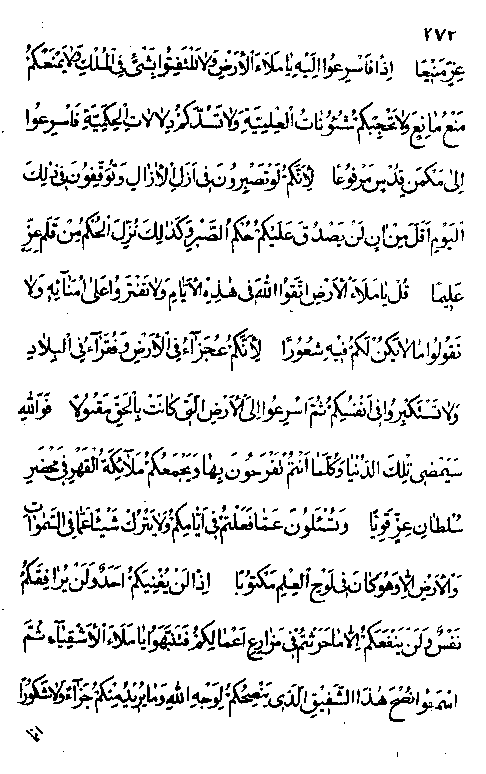 ٢٧٢
عزّ منيعا اذا فاسرعوا اليه يا ملاء الأرض ولا تلتفتوا بشئ فى الملك ولا يمنعكم
منع مانع ولا تحجبكم شئونات العلمية ولا تسدّكم دلالات الحكمية فاسرعوا
الى مكمن قدس مرفوعا لأنكم لو تصبرون فى ازل الآزال وتوقفون فى ذلك
اليوم اقل من ان لن يصدق عليكم حكم الصبر وكذلك نزل الحكم من قلم عزّ
عليما قل يا ملاء الأرض اتقوا الله فى هذه الأيام ولا تفتروا على امنائه ولا
تقولوا ما لا يكن لكم فيه شعورا لأنكم عجزآء فى الأرض وفقرآء فى البلاد
ولا تستكبروا فى انفسكم ثم اسرعوا الى الأرض التى كانت بالحق مقبولا فوالله
سيمضى تلك الدنيا وكلما انتم تفرحون بها ويجمعكم ملائكة القهر فى محضر
سلطان عزّ قويا وتسئلون عما فعلتم فى ايامكم ولا يترك شيئا عما فى السموات
والأرض الا وهو كان فى لوح العلم مكتوبا اذا لن يغنيكم احد ولن يرافقكم
نفس ولن ينفعكم الا ما حرثتم فى مزارع اعمالكم فتنبهوا يا ملاء الأشقياء ثم
اسمعوا نصح هذا الشفيق الذى ينصحكم لوجه الله وما يريد منكم جزآء ولا شكورا